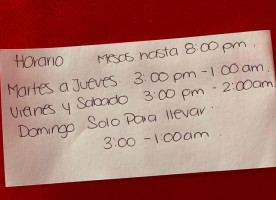 Horario Mesas hasta 8:00 pm.
Martes a Jueves 3:00 pm - 1:00 am.
Viernes y Sabado 3:00 pm - 2:00am
Domingo Solo Para llevar.
3:00 - 1:00am